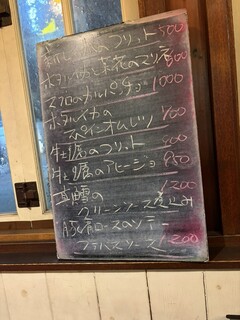 のフリット 500
ホタルイカと菜花のマリネ 800
マグロのカルパッチョ 1000
ホタルイカの
スペインオムレツ 700
牡蠣のフリット 900
牡蠣のアヒージョ 950
真鱈の 1200
グリーンソース煮込み
豚肩ロースのソテー
ソース 1200